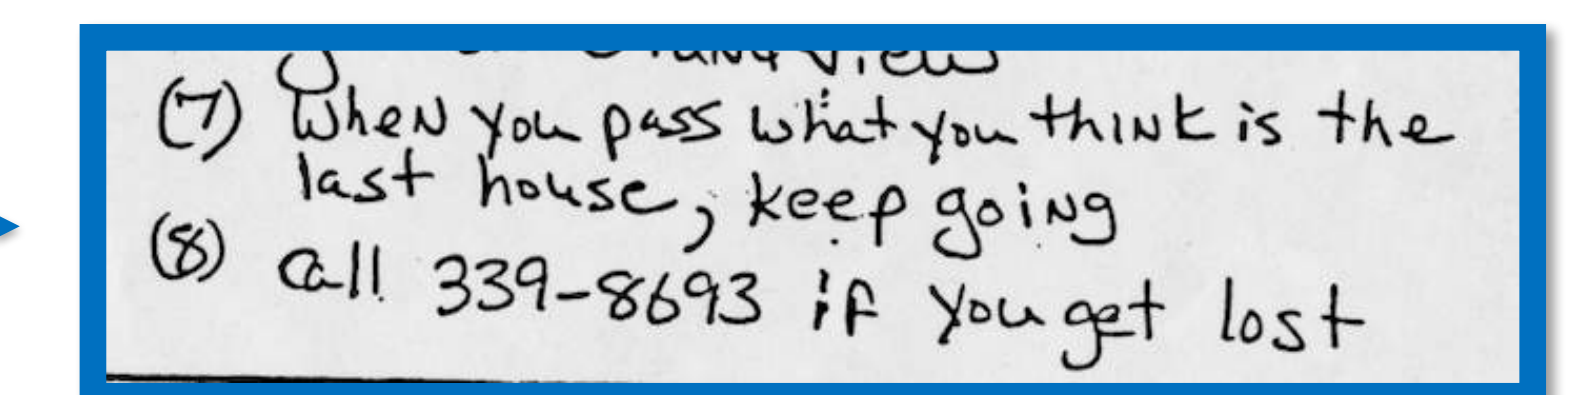 (7) When you pass what you think is the
last house, keep going
(8) Call 339-8693 if you get lost